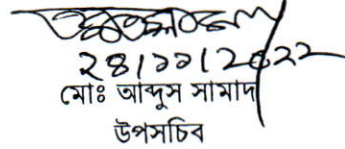 ২৪/১১/২০২২
মোঃ আব্দুস সামাদ
উপসচিব